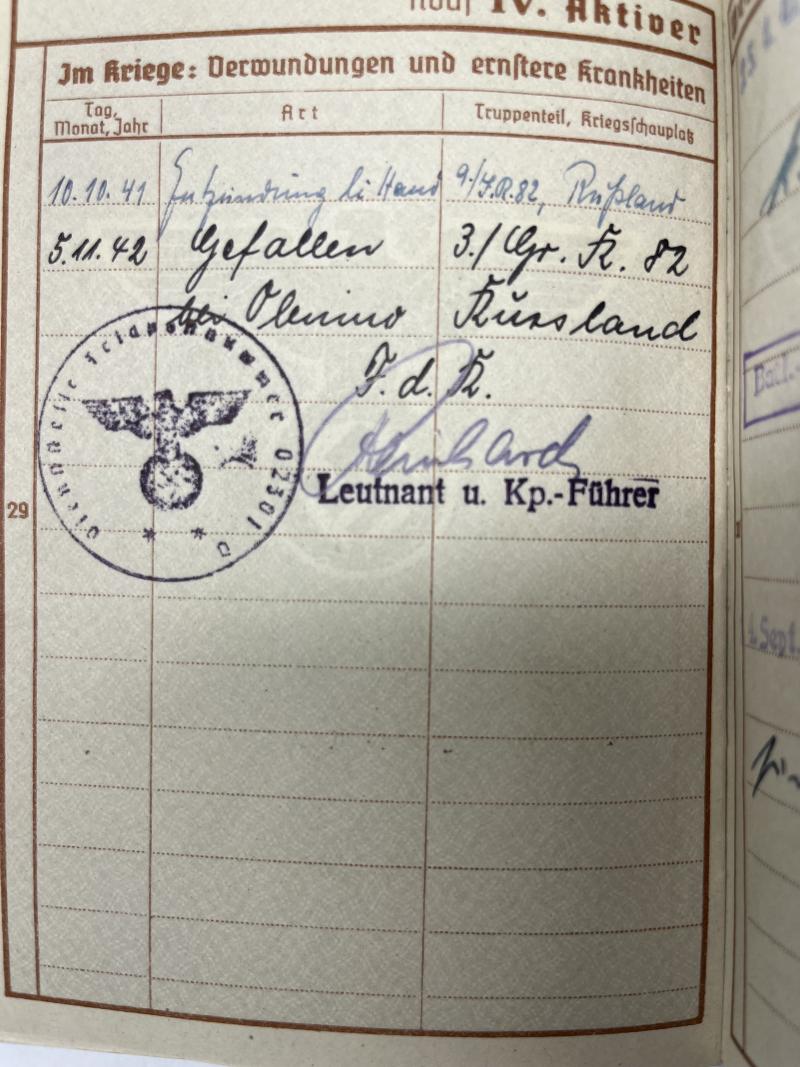 IV. Aktiver
Im Kriege: Verwundungen und ernstere Krankheiten
Tag, Monat, Jahr
Art
Truppenteil, Kriegsschauplatz
10.10.41 Entzündung li Hand 9./I.R.82, Rußland
5.11.42 Gefallen 3./Gr. R. 82
bei Russland
F. d. R.
Leutnant u. Kp.-Führer
Dienststelle Feldpostnummer 02301 D
29
Batl.-
1. Sept.